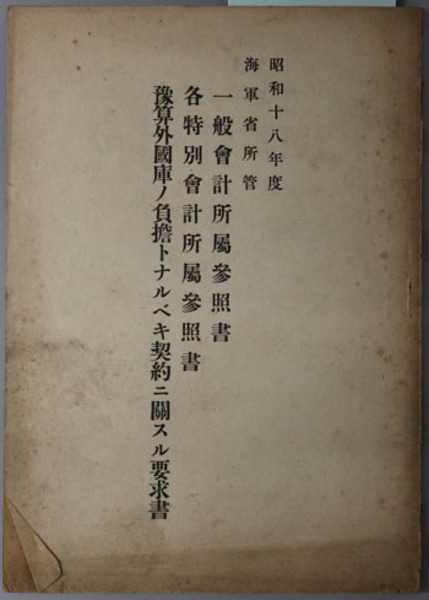 昭和十八年度
海軍省所管
一般會計所屬參照書
各特別會計所屬參照書
豫算外國庫ノ負擔トナルベキ契約ニ關スル要求書